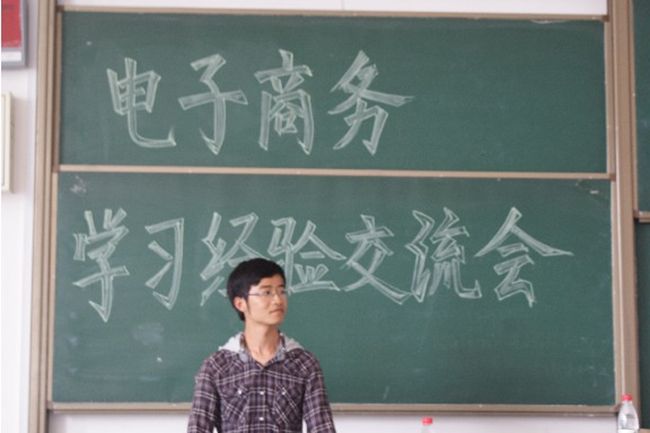 电子商务
学习经验交流会